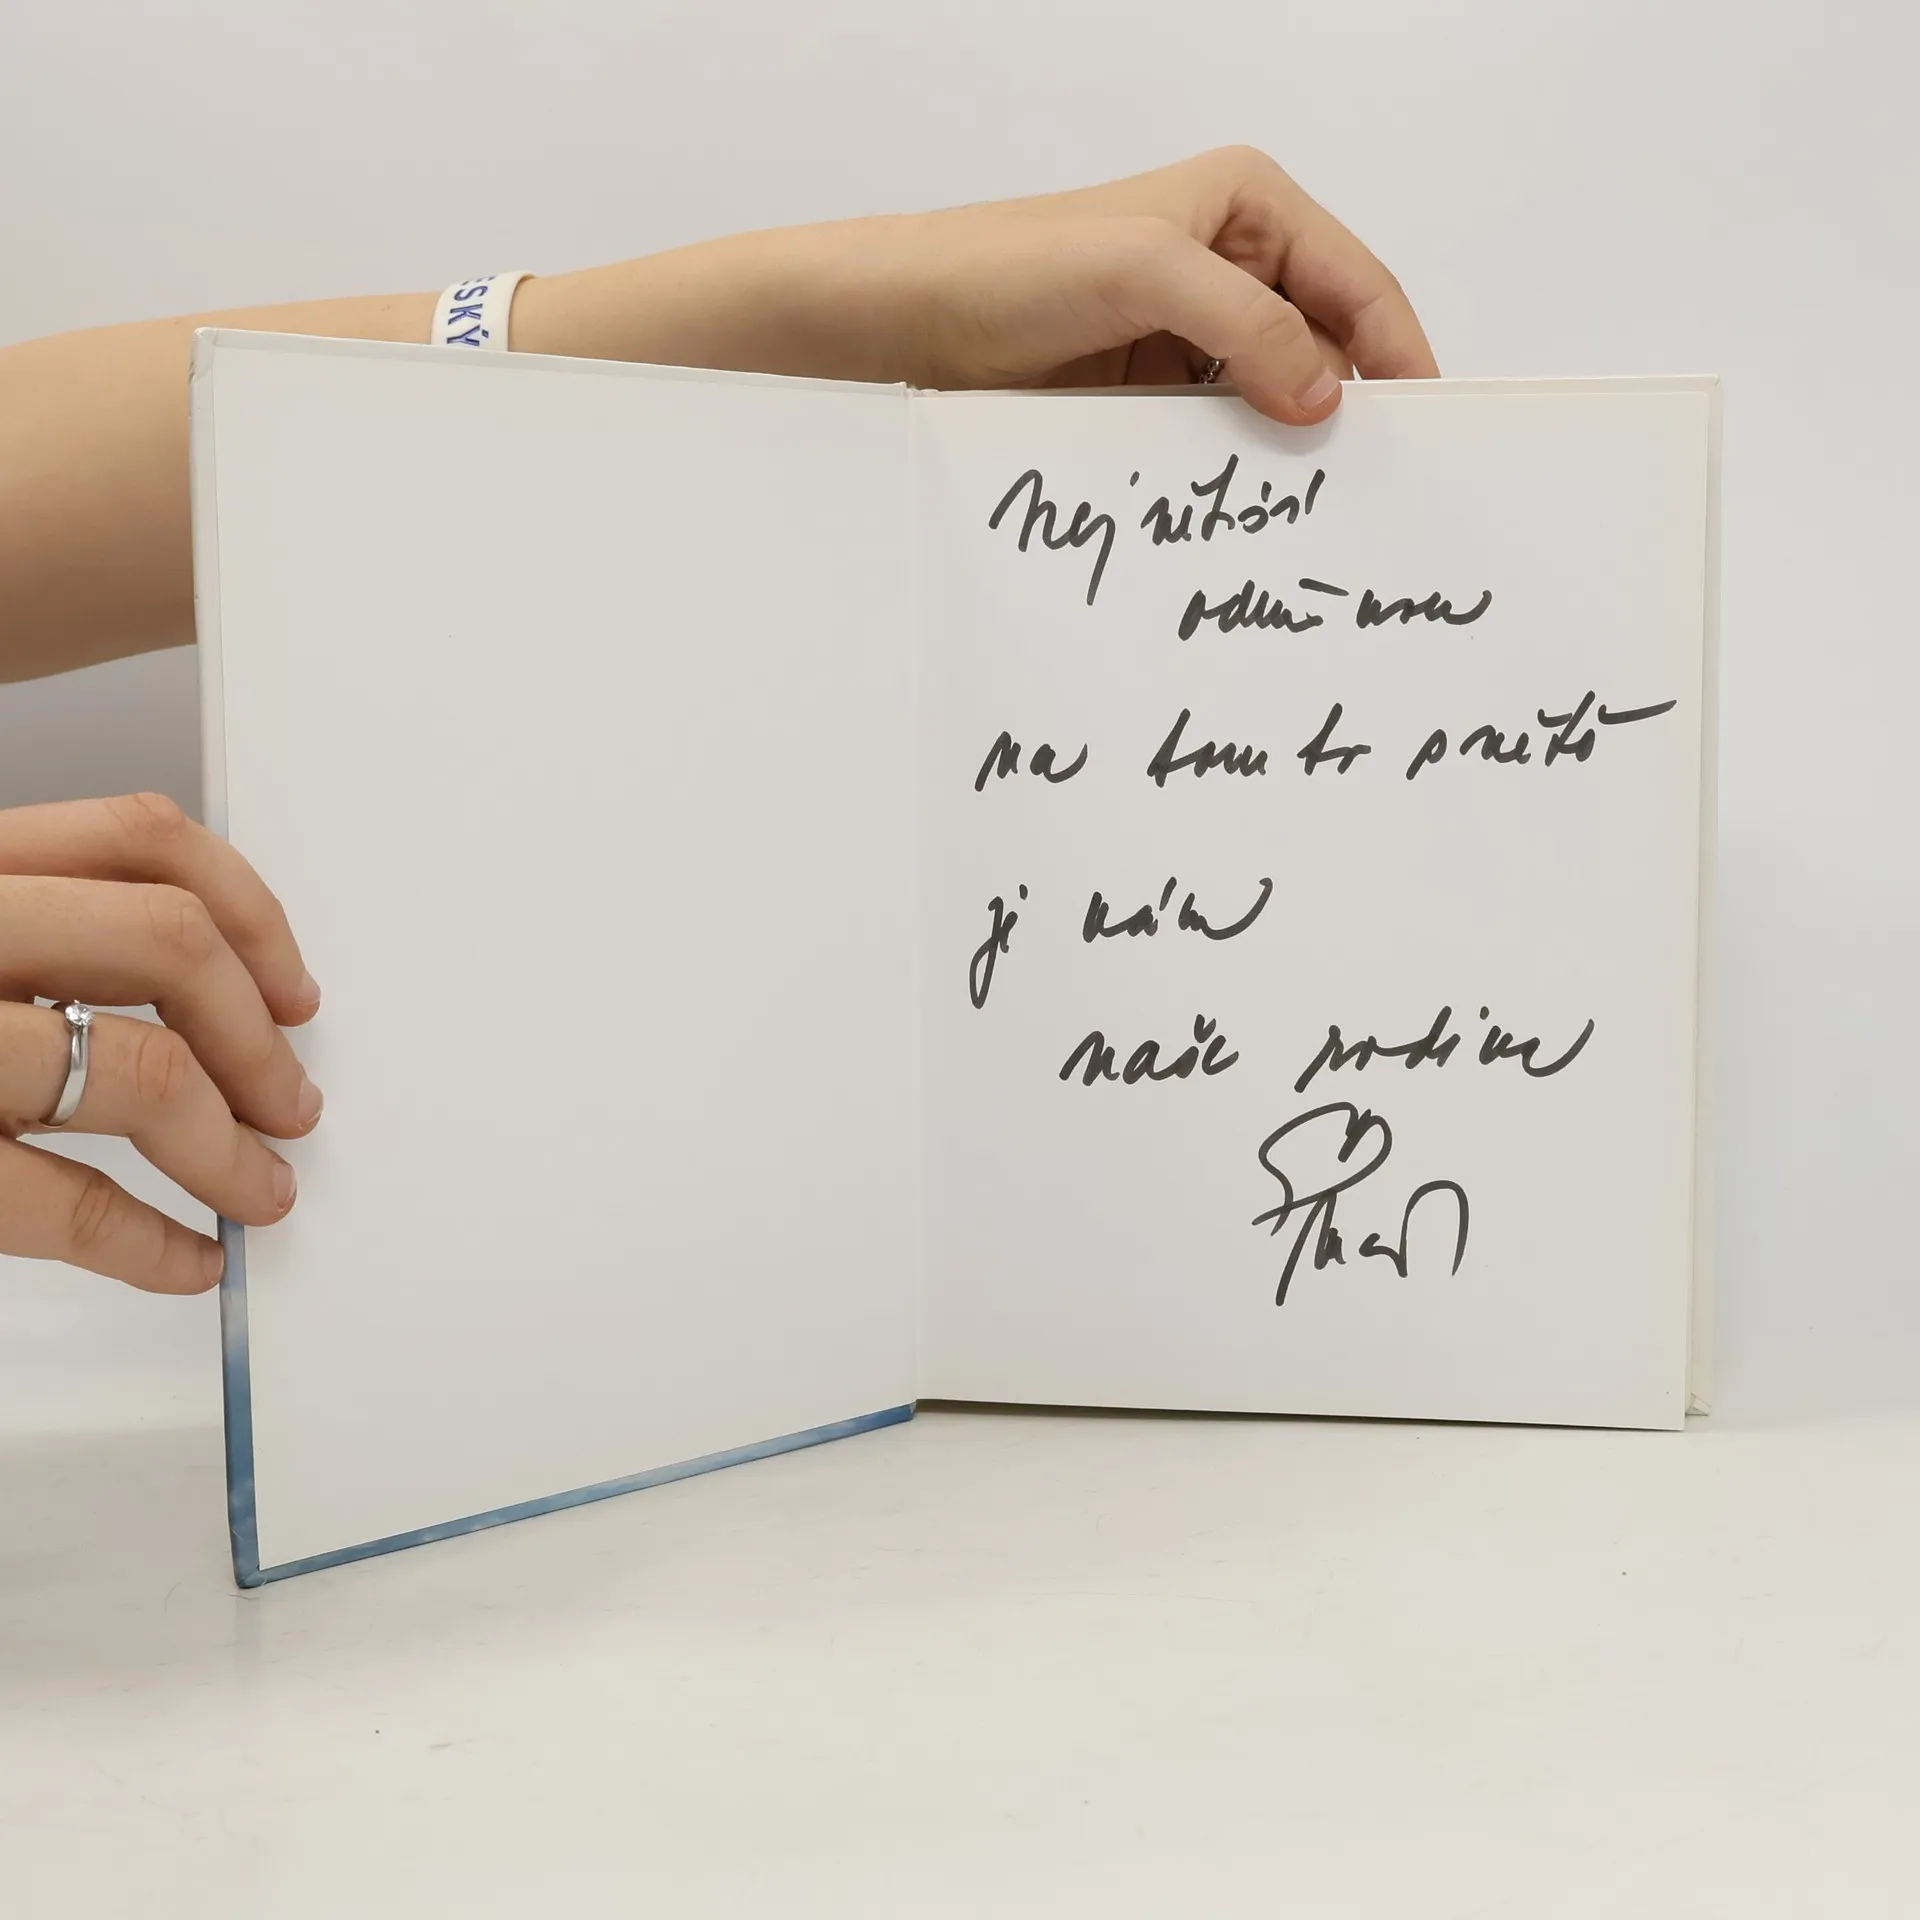 ESKÝ
Největší
odměnou
na tomto světě
je nám
naše rodina